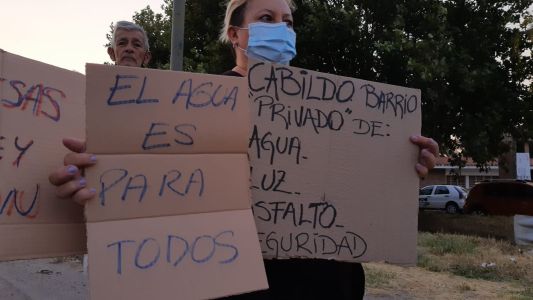 ESAS
EY
EL AGUA
ES
PARA
TODOS
CABILDO BARRIO
"PRIVADO" DE:
AGUA_
LUZ_
ASFALTO_
SEGURIDAD